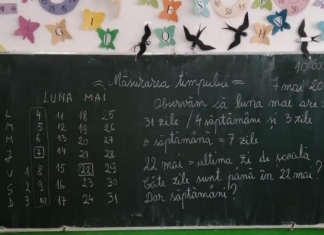 10.05
= Măsurarea timpului =
7 mai 20
LUNA MAI
L 4 11 18 25
M 5 12 19 26
M 6 13 20 27
J 7 14 21 28
V 1 8 15 22 29
S 2 9 16 23 30
D 3 10 17 24 31
Observăm să luna mai are:
31 zile / 4 săptămâni și 3 zile
o săptămână = 7 zile
22 mai = ultima zi de școală
Câte zile sunt până în 22 mai?
Dar săptămâni?